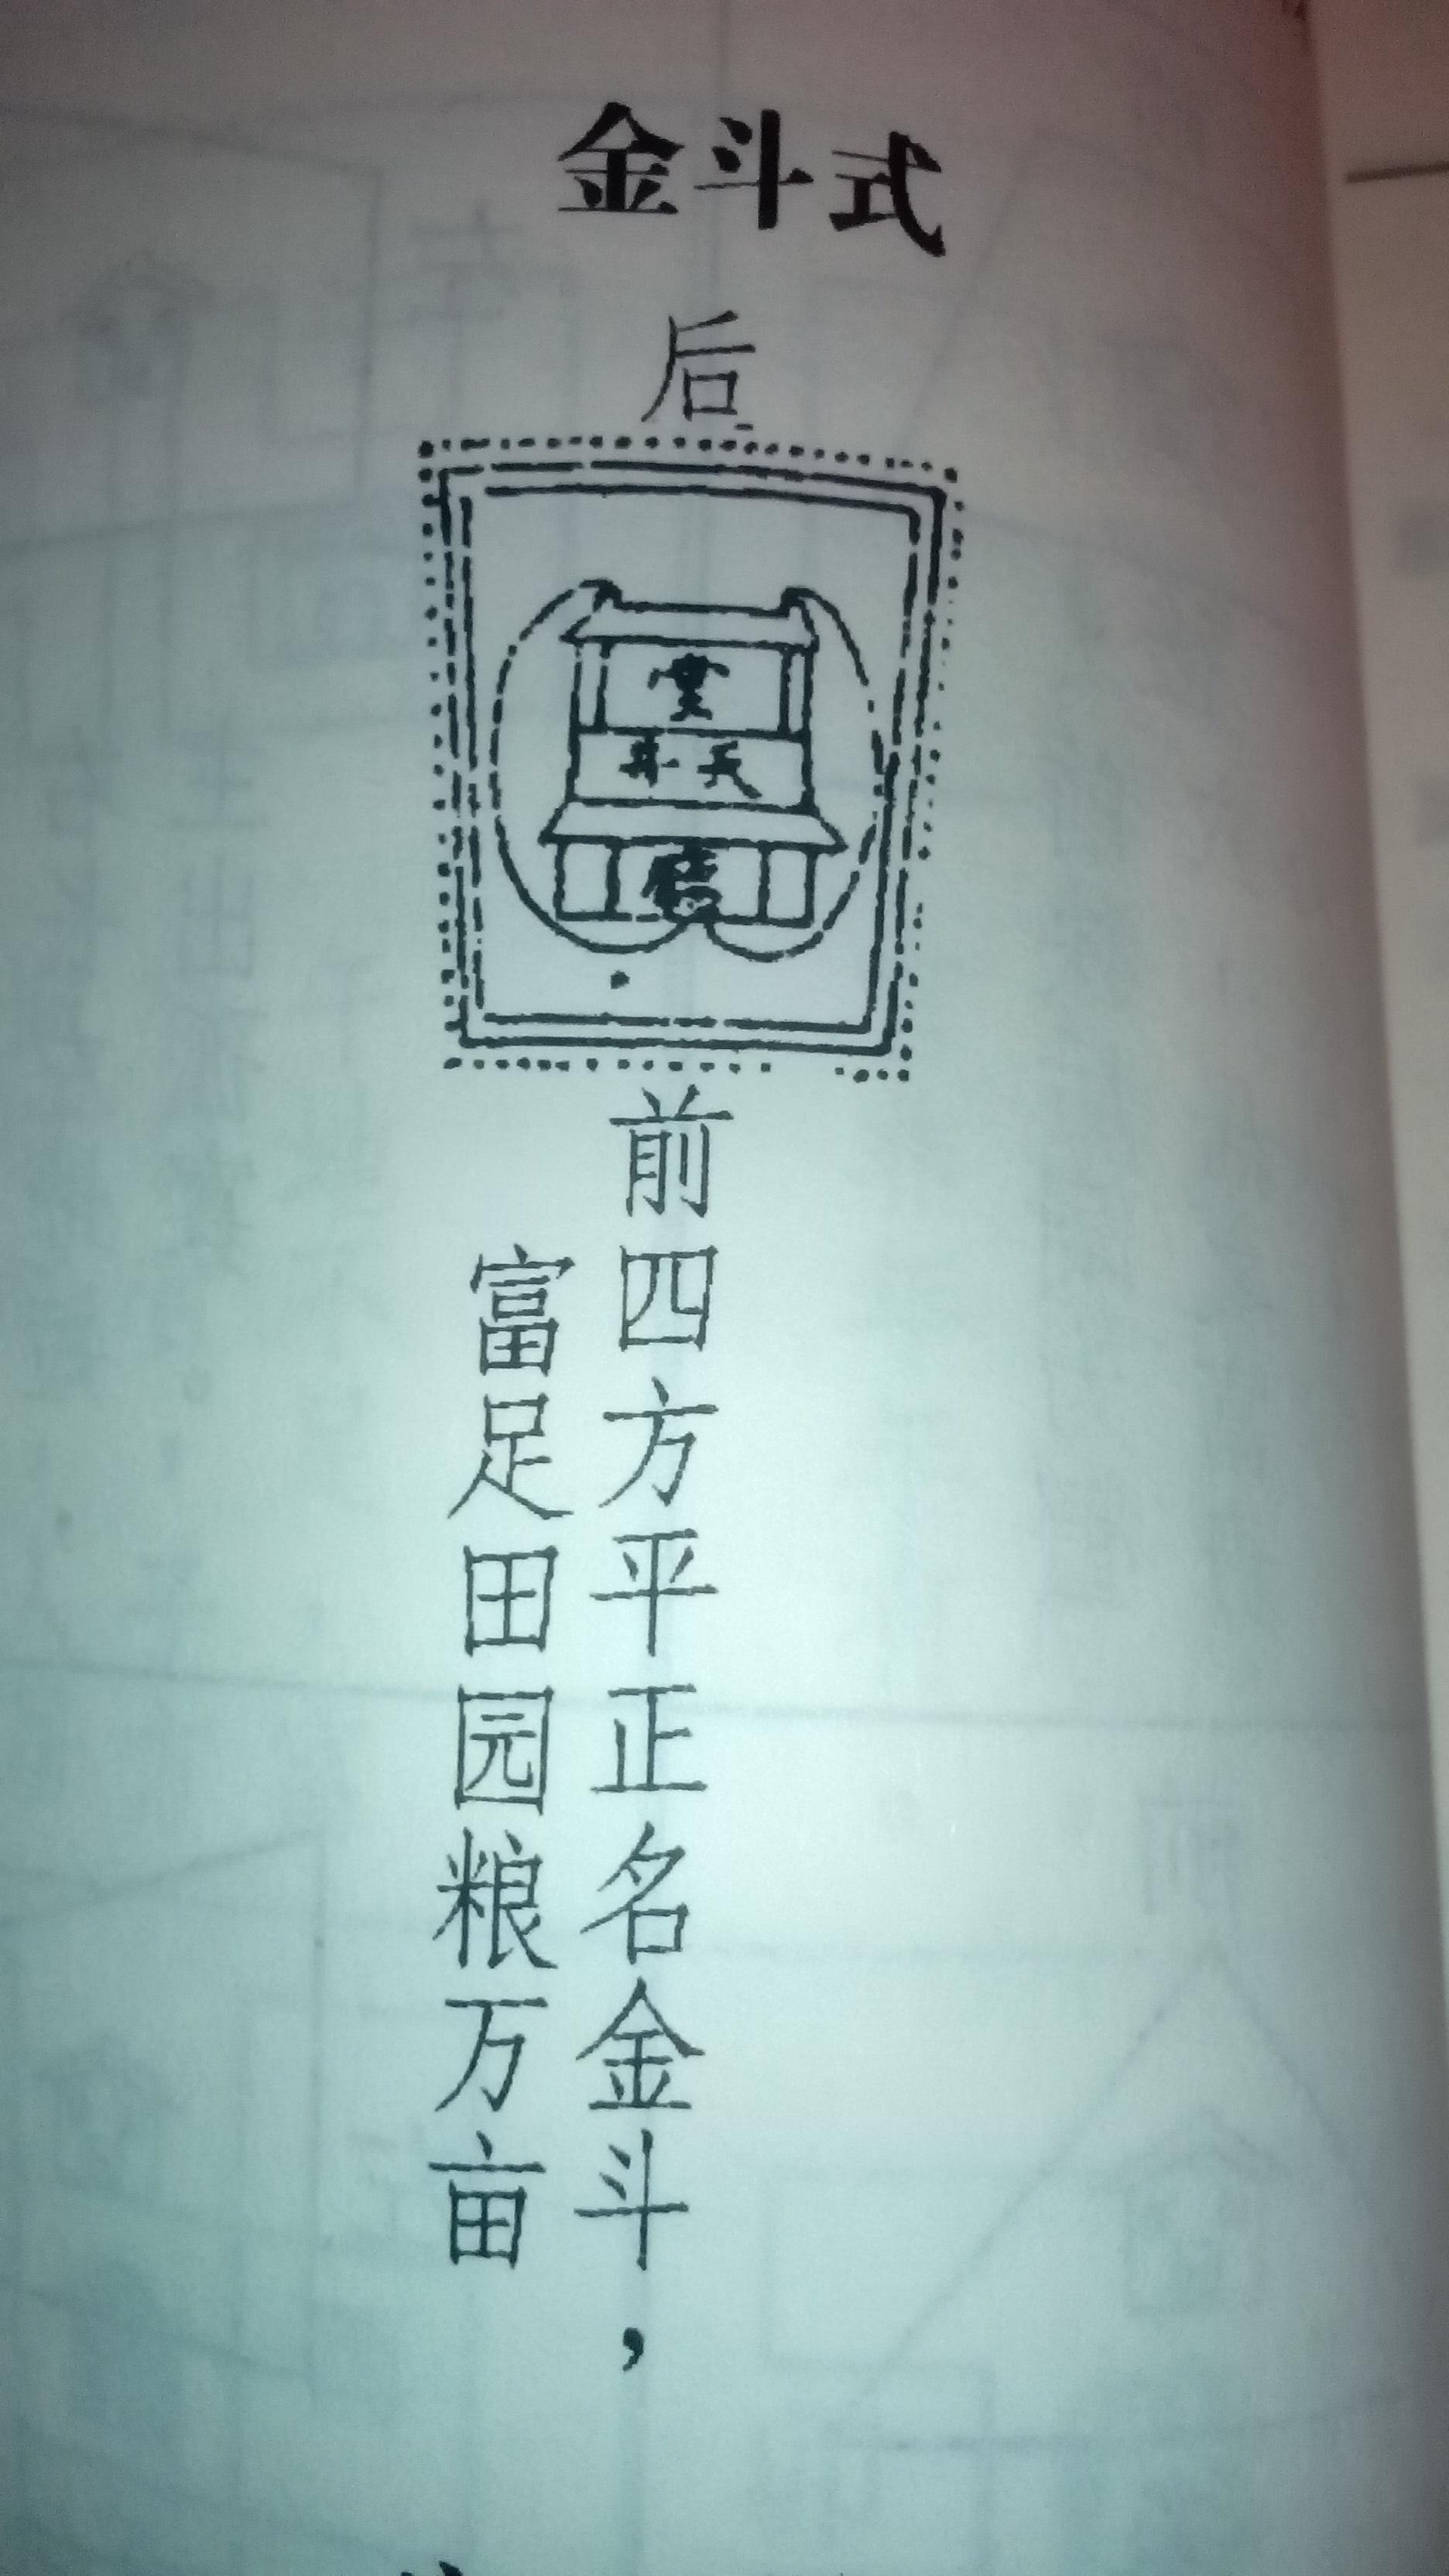 金斗式
后
堂
天井
廳
前
四方平正名金斗，
富足田园粮万亩